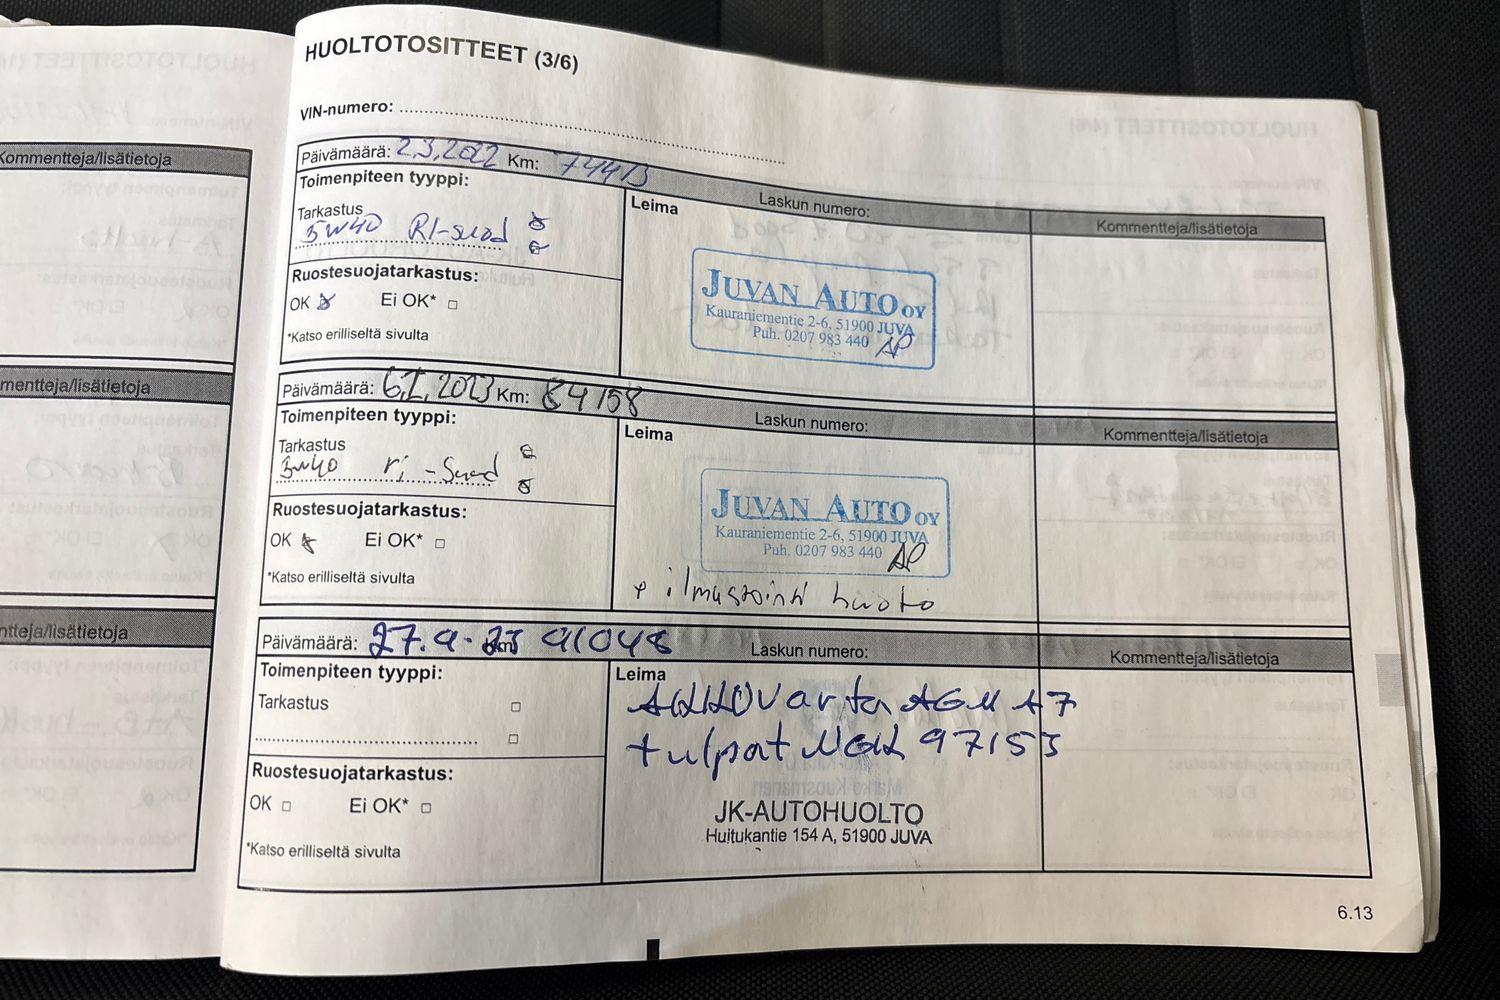 HUOLTOTOSITTEET (3/6)
VIN-numero:
Päivämäärä: 2.3.2022 Km: 74413
Laskun numero:
Toimenpiteen tyyppi:
Leima
Kommentteja/lisätietoja
Tarkastus
5W40 RI-suod
JUVAN AUTO OY
Kauraniementie 2-6, 51900 JUVA
Puh. 0207 983 440
AP
Ruostesuojatarkastus:
OK Ei OK*
*Katso erilliseltä sivulta
Päivämäärä: 2023 Km: 84158
Laskun numero:
Toimenpiteen tyyppi:
Leima
Kommentteja/lisätietoja
Tarkastus
5W40 ri-Suod
JUVAN AUTO OY
Kauraniementie 2-6, 51900 JUVA
Puh. 0207 983 440
AP
Ruostesuojatarkastus:
OK Ei OK*
*Katso erilliseltä sivulta
ilmastointi huolto
Päivämäärä: 27.9-23 91048
Laskun numero:
Toimenpiteen tyyppi:
Leima
Kommentteja/lisätietoja
Tarkastus
AKKU Varta AGM A7
tulpat NGK 97153
Ruostesuojatarkastus:
OK Ei OK*
*Katso erilliseltä sivulta
JK-AUTOHUOLTO
Huitukantie 154 A, 51900 JUVA
6.13
Kommentteja/lisätietoja
mentteja/lisätietoja
ntteja/lisätietoja